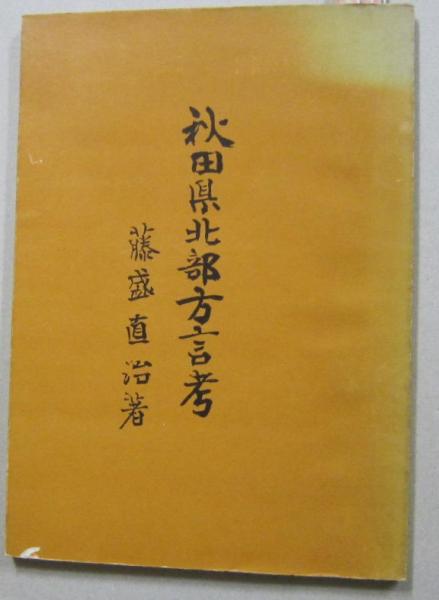 秋田県北部方言考
藤盛直治著